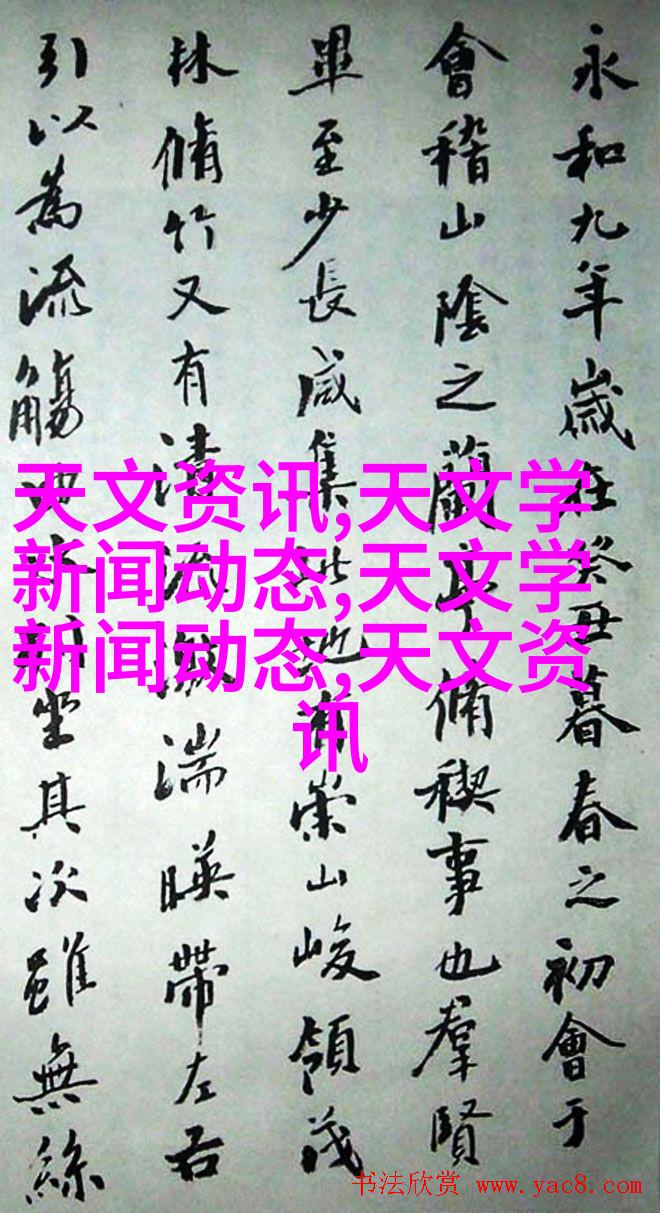 永和九年歲在癸丑暮春之初會于
會稽山陰之蘭亭脩稧事也羣賢
畢至少長咸集此地有崇山峻領茂
林脩竹又有清流激湍暎帶左右
引以為流觴曲水列坐其次雖無絲
天文资讯,天文学
新闻动态,天文学
新闻动态,天文资
讯
书法欣赏 www.yac8.com